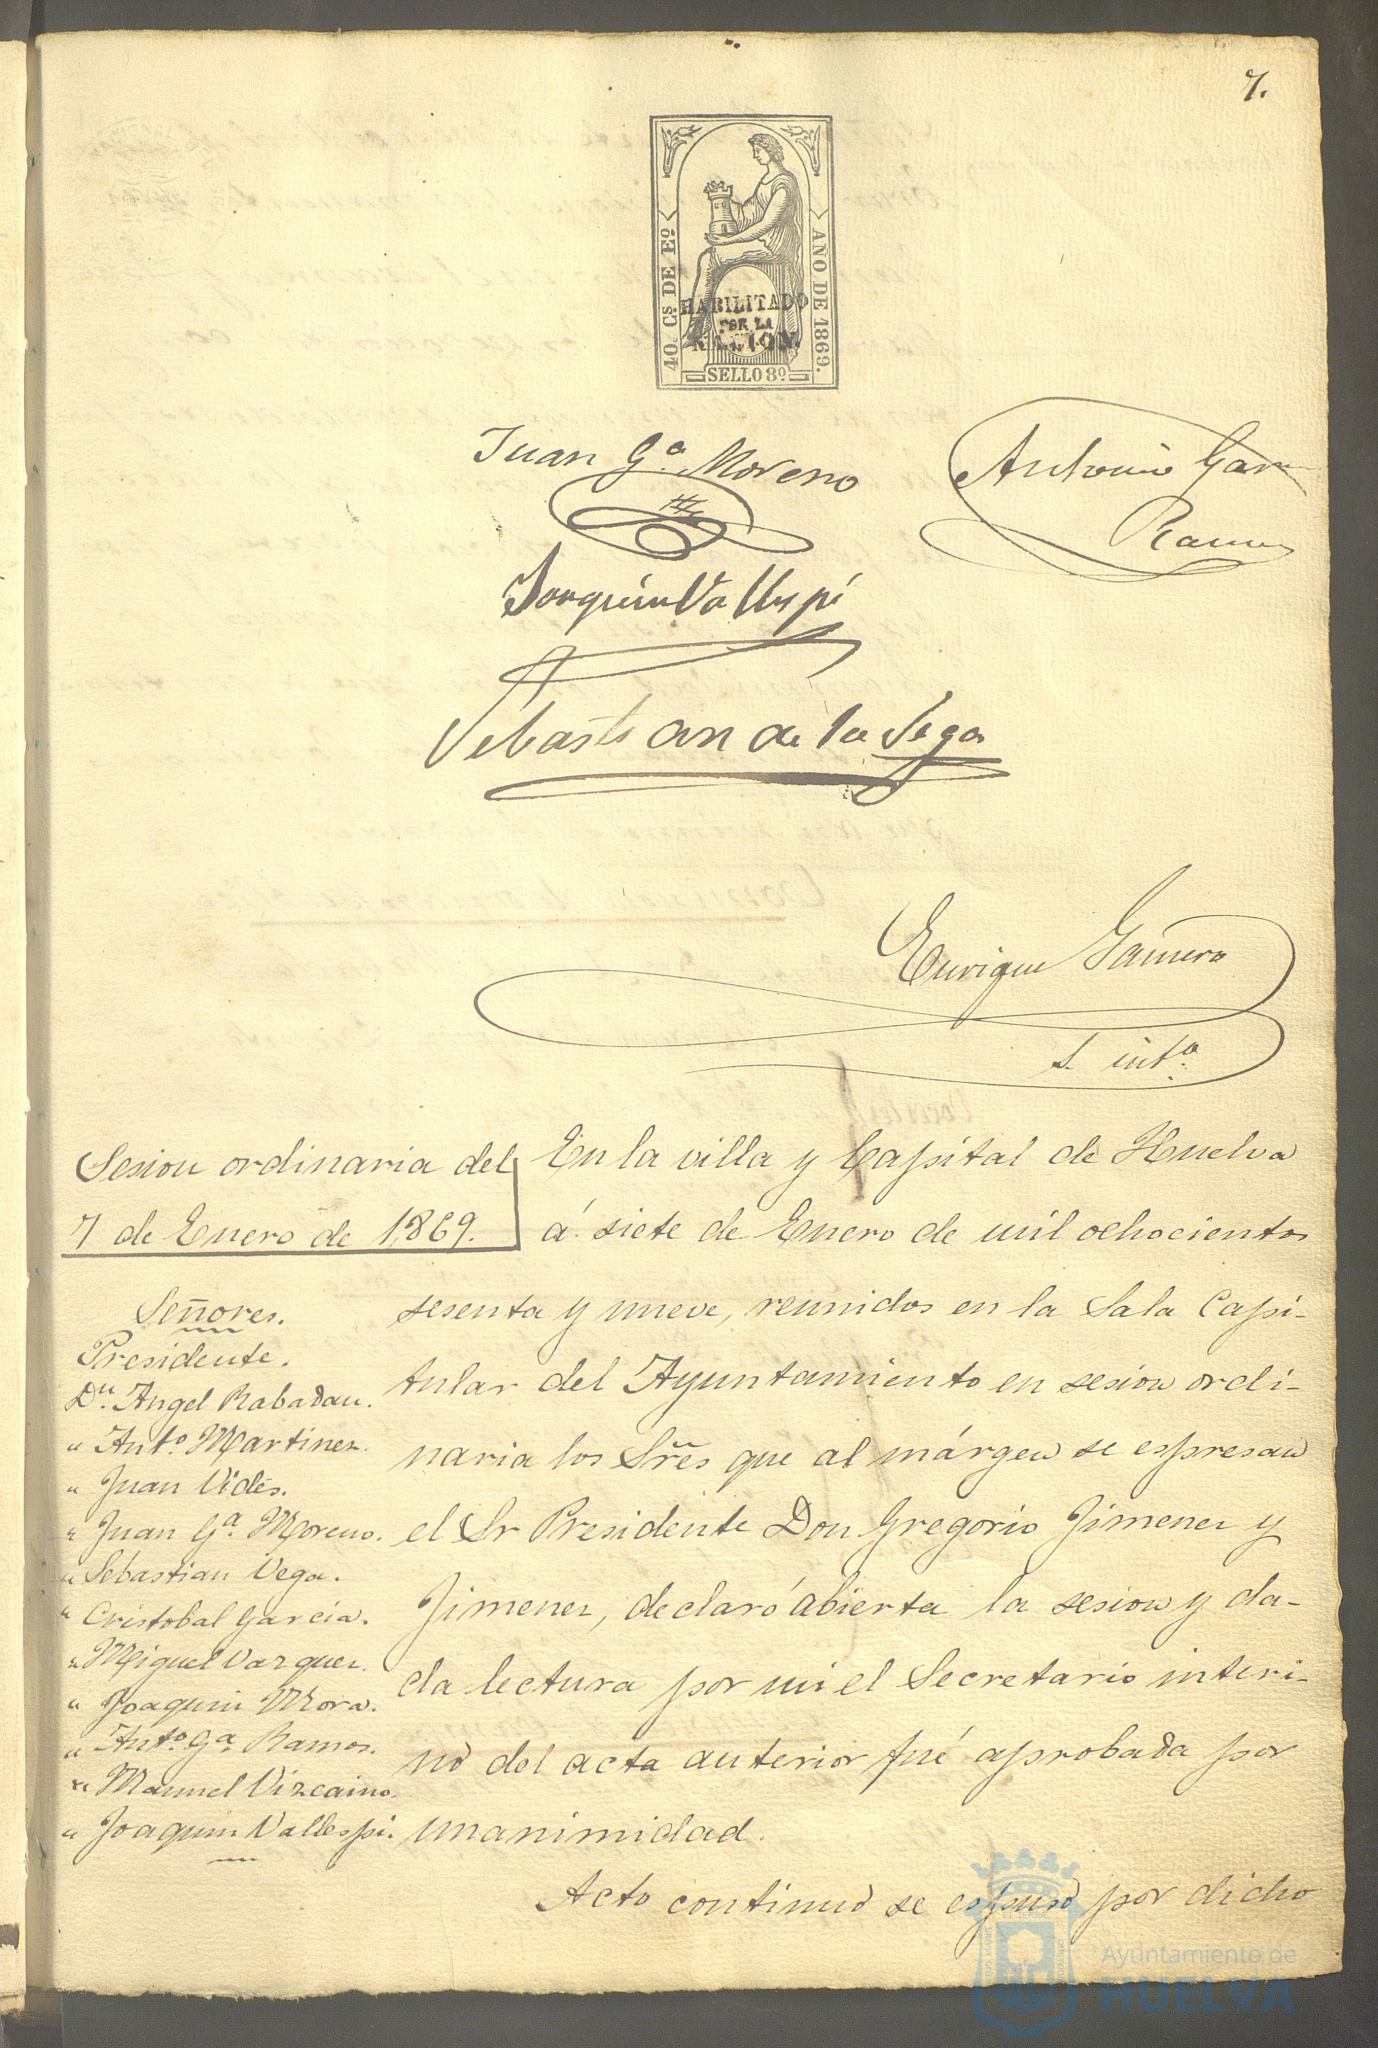 7.
40. Cs DE Eº
AÑO DE 1869.
HABILITADO
POR LA
NACION.
SELLO 8º
Juan Gª. Moreno
Antonio Gar
Ramos
Joaquin Vallespi
Sebastian de la Vega
Enrique
S. intº.
Sesion ordinaria del
7 de Enero de 1,869.
Señores.
Presidente.
Dn. Angel Rabadan.
" Antº. Martinez.
" Juan Vides.
" Juan Gª. Moreno.
" Sebastian Vega.
" Cristobal Garcia.
" Miguel Vazquez.
" Joaquin Mora.
" Antº. Gª. Ramos.
" Manuel Vizcaino.
" Joaquin Vallespi.
En la villa y Capital de Huelva
á siete de Enero de mil ochocientos
sesenta y nueve, reunidos en la Sala Capi-
tular del Ayuntamiento en sesion ordi-
naria los Sres que al márgen se espresan
el Sr Presidente Don Gregorio Jimenez y
Jimenez, declaró abierta la sesion y da-
da lectura por mi el Secretario interi-
no del acta anterior fué aprobada por
unanimidad.
Acto continuo se espuso por dicho
Ayuntamiento de
HUELVA